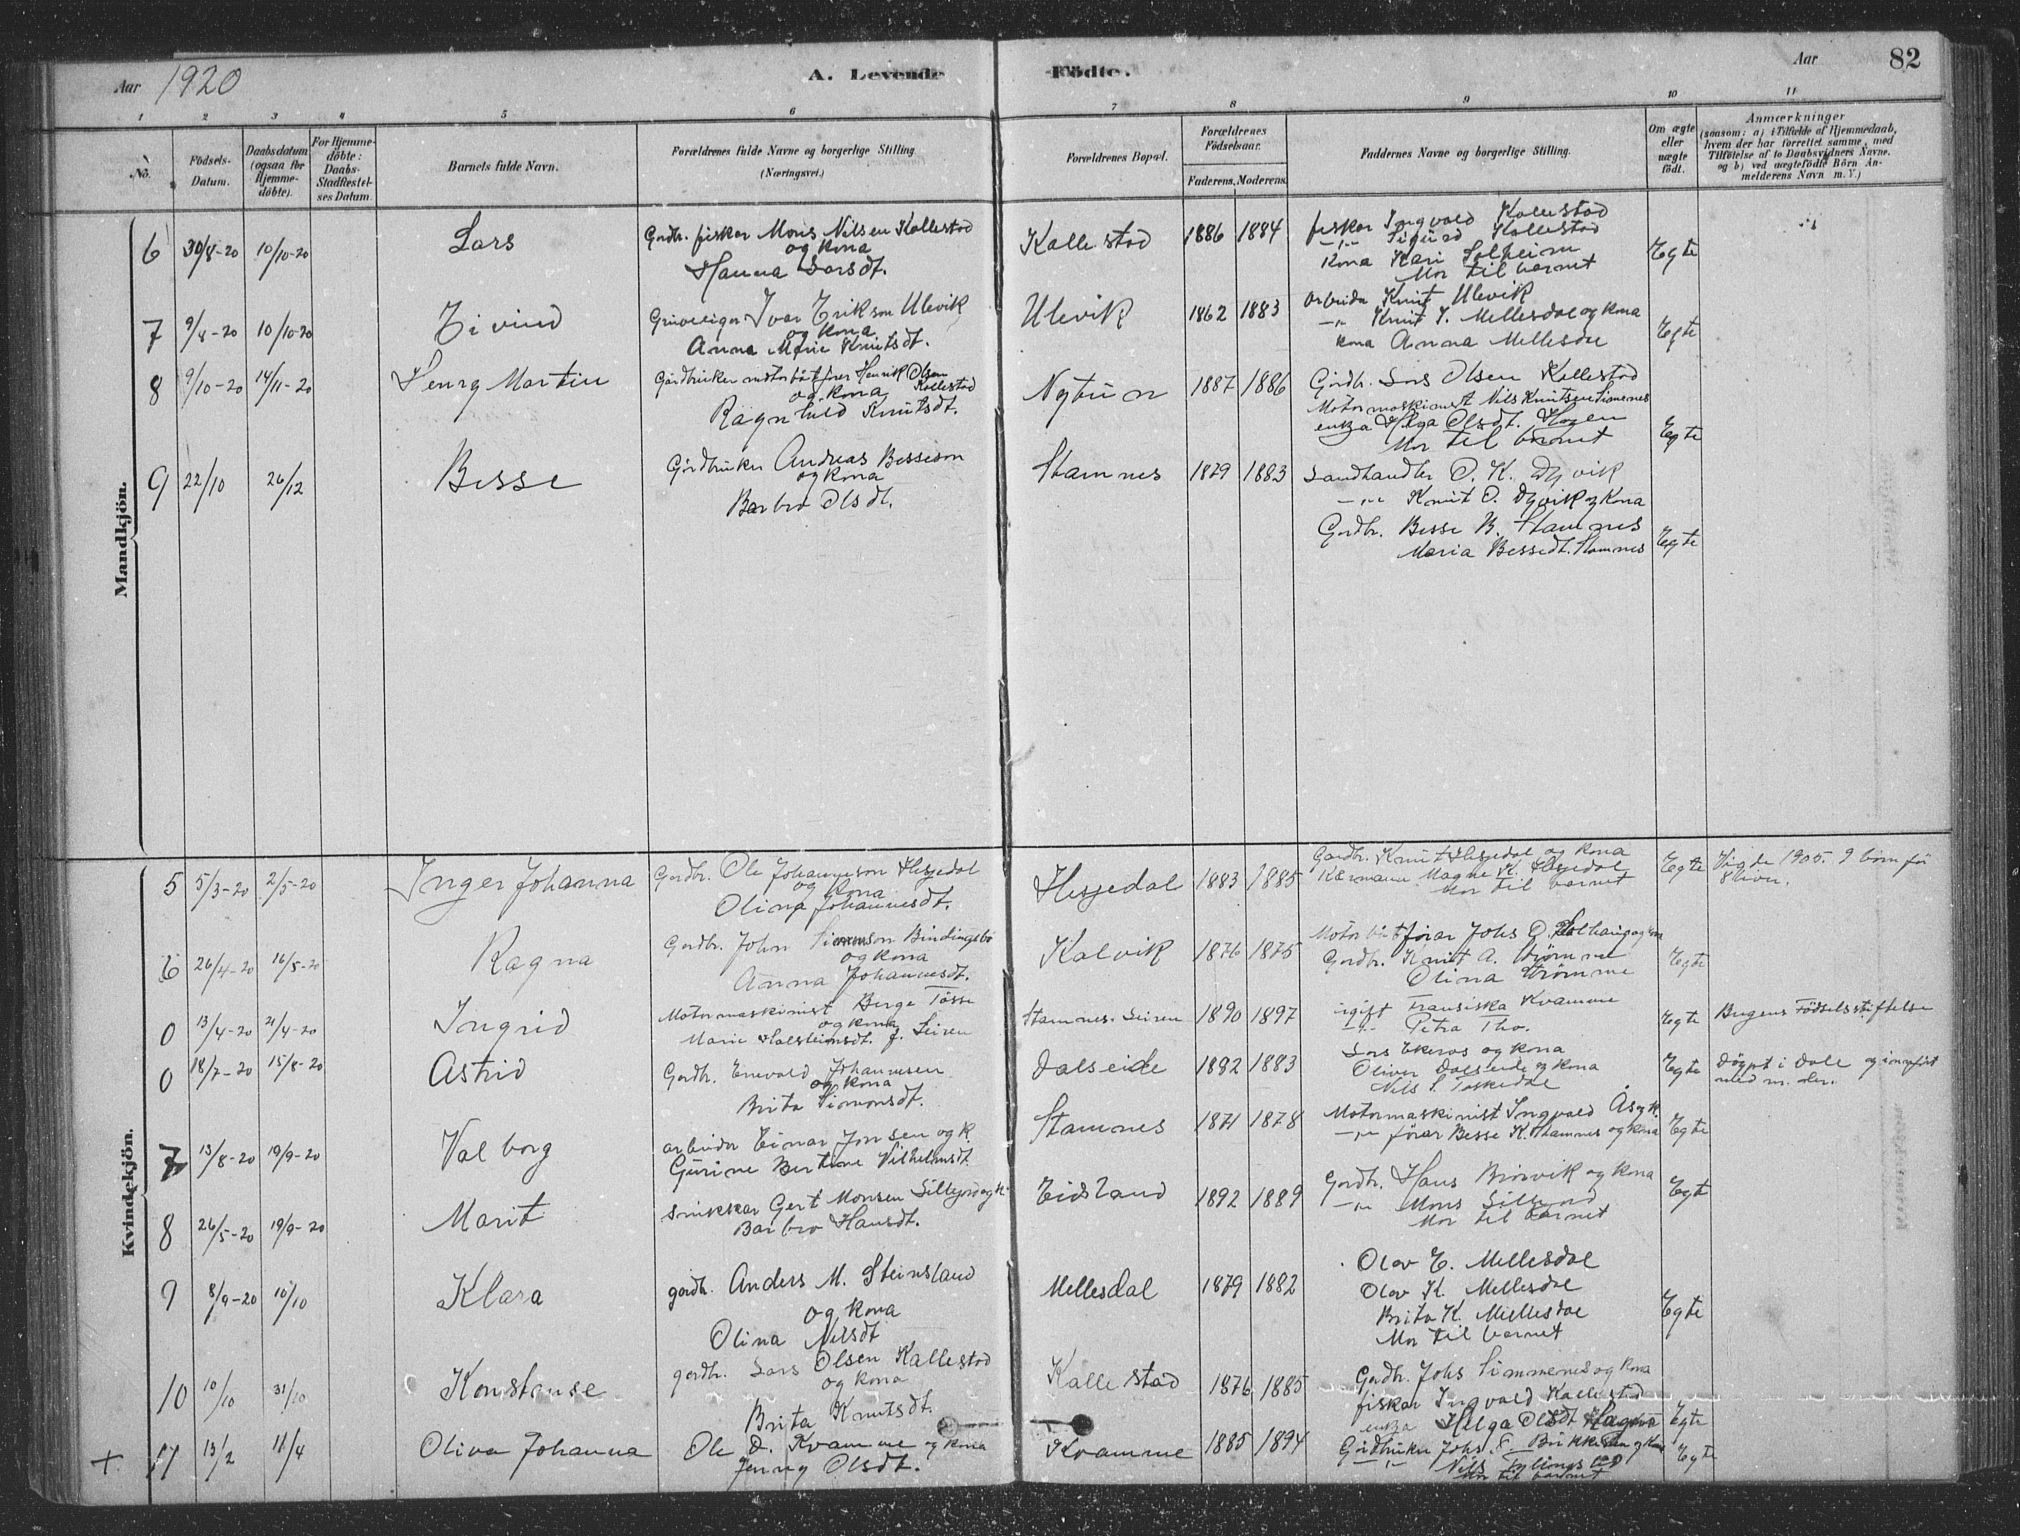 Aar 1920 A. Levende Födte. Aar 82
1 2 3 4 5 6 7 8 9 10 11
No. Födsels-Datum. Daabsdatum (ogsaa för Hjemme-döbte). For Hjemme-döbte: Daabs-Stadfæstel-ses Datum. Barnets fulde Navn. Forældrenes fulde Navne og borgerlige Stilling. (Næringsvei.) Forældrenes Bopæl. Forældrenes Födselsaar. Faderens. Moderens. Faddernes Navne og borgerlige Stilling. Om ægte eller uægte födt. Anmærkninger (saasom: a) i Tilfælde af Hjemmedaab, hvem der har forrettet samme, med Tilföielse af to Daabsvidners Navne. og b) ved uægtefödte Börn Anmelderens Navn m. V.)
Mandkjön.
6 30/8-20 10/10-20 Lars Gardbr. fisker Mons Nilsen Kallestad
og kona
Hanna Larsdt.
Kallestad 1886 1884 fisker Ingvald Kallestad
-"- Sigurd Kallestad
Kona Kari Solheim
Mor til barnet
Egte
7 9/4-20 10/10-20 Eivind Ivar Erikson Ulevik
og kona
Anna Marie Knutsdt.
Ulevik 1862 1883 arbeidar Knut Ulevik
-"- Knut I. Mellesdal og kona
kona Anna Mellesdal
Egte
8 9/10-20 14/11-20 Henry Martin Gardbruker motorbåtförer Henrik Olsen Kallestad
og kona
Ragnhild Knutsdt.
Nytun 1887 1886 Gardbr. Lars Olsen Kallestad
Motormaskinist Nils Knutsen Simenes
enkja Helga Olsdt. Hagen
Mor til barnet
Egte
9 22/10 26/12 Besse Gardbruker Andreas Besseson
og kona
Barbro Olsdt.
Stamnes 1879 1883 Landhandler O. K. Dyvik
-"- Knut O. Dyvik og kona
Gardbr. Besse B. Stamnes
Maria Bessedt. Stamnes
Egte
Kvindekjön.
5 5/3-20 2/5-20 Inger Johanna Gardbr. Ole Johanneson Hesjedal
og kona
Olina Johannesdt.
Hesjedal 1883 1885 Gardbr. Knut Hesjedal og kona
Magne K. Hesjedal
Mor til barnet
Egte Vigde 1905. 9 born fø
8 liver.
6 26/4-20 16/5-20 Ragna Gardbr. John Simonson Bindingsbø
og kona
Anna Johannesdt.
Kalvik 1876 1875 Motorbåtförar Johs O. Solhaug og kona
Gardbr. Knut A. Strømme
Olina Strømme
Egte
0 13/4-20 21/4-20 Ingrid Motormaskinist Berge Tøsse
og kona
Marie Halsteinsdt. f. Leiren
Stamnes. Leiren 1890 1897 ugift Fransiska Kvamme
-"- Petra Tho.
Egte Bergens Födselsstiftelse
0 18/7-20 15/8-20 Astrid Gardbr. Enevald Johannesen
og kona
Brita Simonsdt.
Dalseide 1892 1883 Lars Ekeras og kona
Oliver Dalseide og kona
Nils S. Toskedal
Egte Døypt i Dale og innført
med m. der.
7 13/8-20 19/9-20 Valborg arbeider Einar Jonsen og k.
Gurine Bertine Vilhelmsdt.
Stamnes 1871 1878 Motormaskinist Ingvald Ås og k.
-"- förar Besse K. Stamnes og kona
Egte
8 26/5-20 19/9-20 Marit snikkar Gert Monsen Lillejord og k.
Barbro Hansdt.
Eidsland 1892 1889 Gardbr. Hans Brørvik og kona
-"- Mons Lillejord
Mor til barnet
Egte
9 8/9-20 10/10 Klara gardbr. Anders M. Steinsland
og kona
Olina Nilsdt
Mellesdal 1879 1882 Olav E. Mellesdal
Olav K. Mellesdal
Brita K. Mellesdal
Mor til barnet
Egte
10 10/10 31/10 Konstanse gardbr. Lars Olsen Kallestad
og kona
Brita Knutsdt.
Kallestad 1876 1885 Gardbr. Johs Simmenes og kona
fiskar Ingvald Kallestad
enkja Helga Olsdt Hagen
Egte
+ 11 13/2 11/4 Oliva Johanna Ole O. Kvamme og kona
Jenny Olsdt.
Kvamme 1885 1894 Gardbruker Johs. og kona
-"- Nils
Mor til barnet
Egte